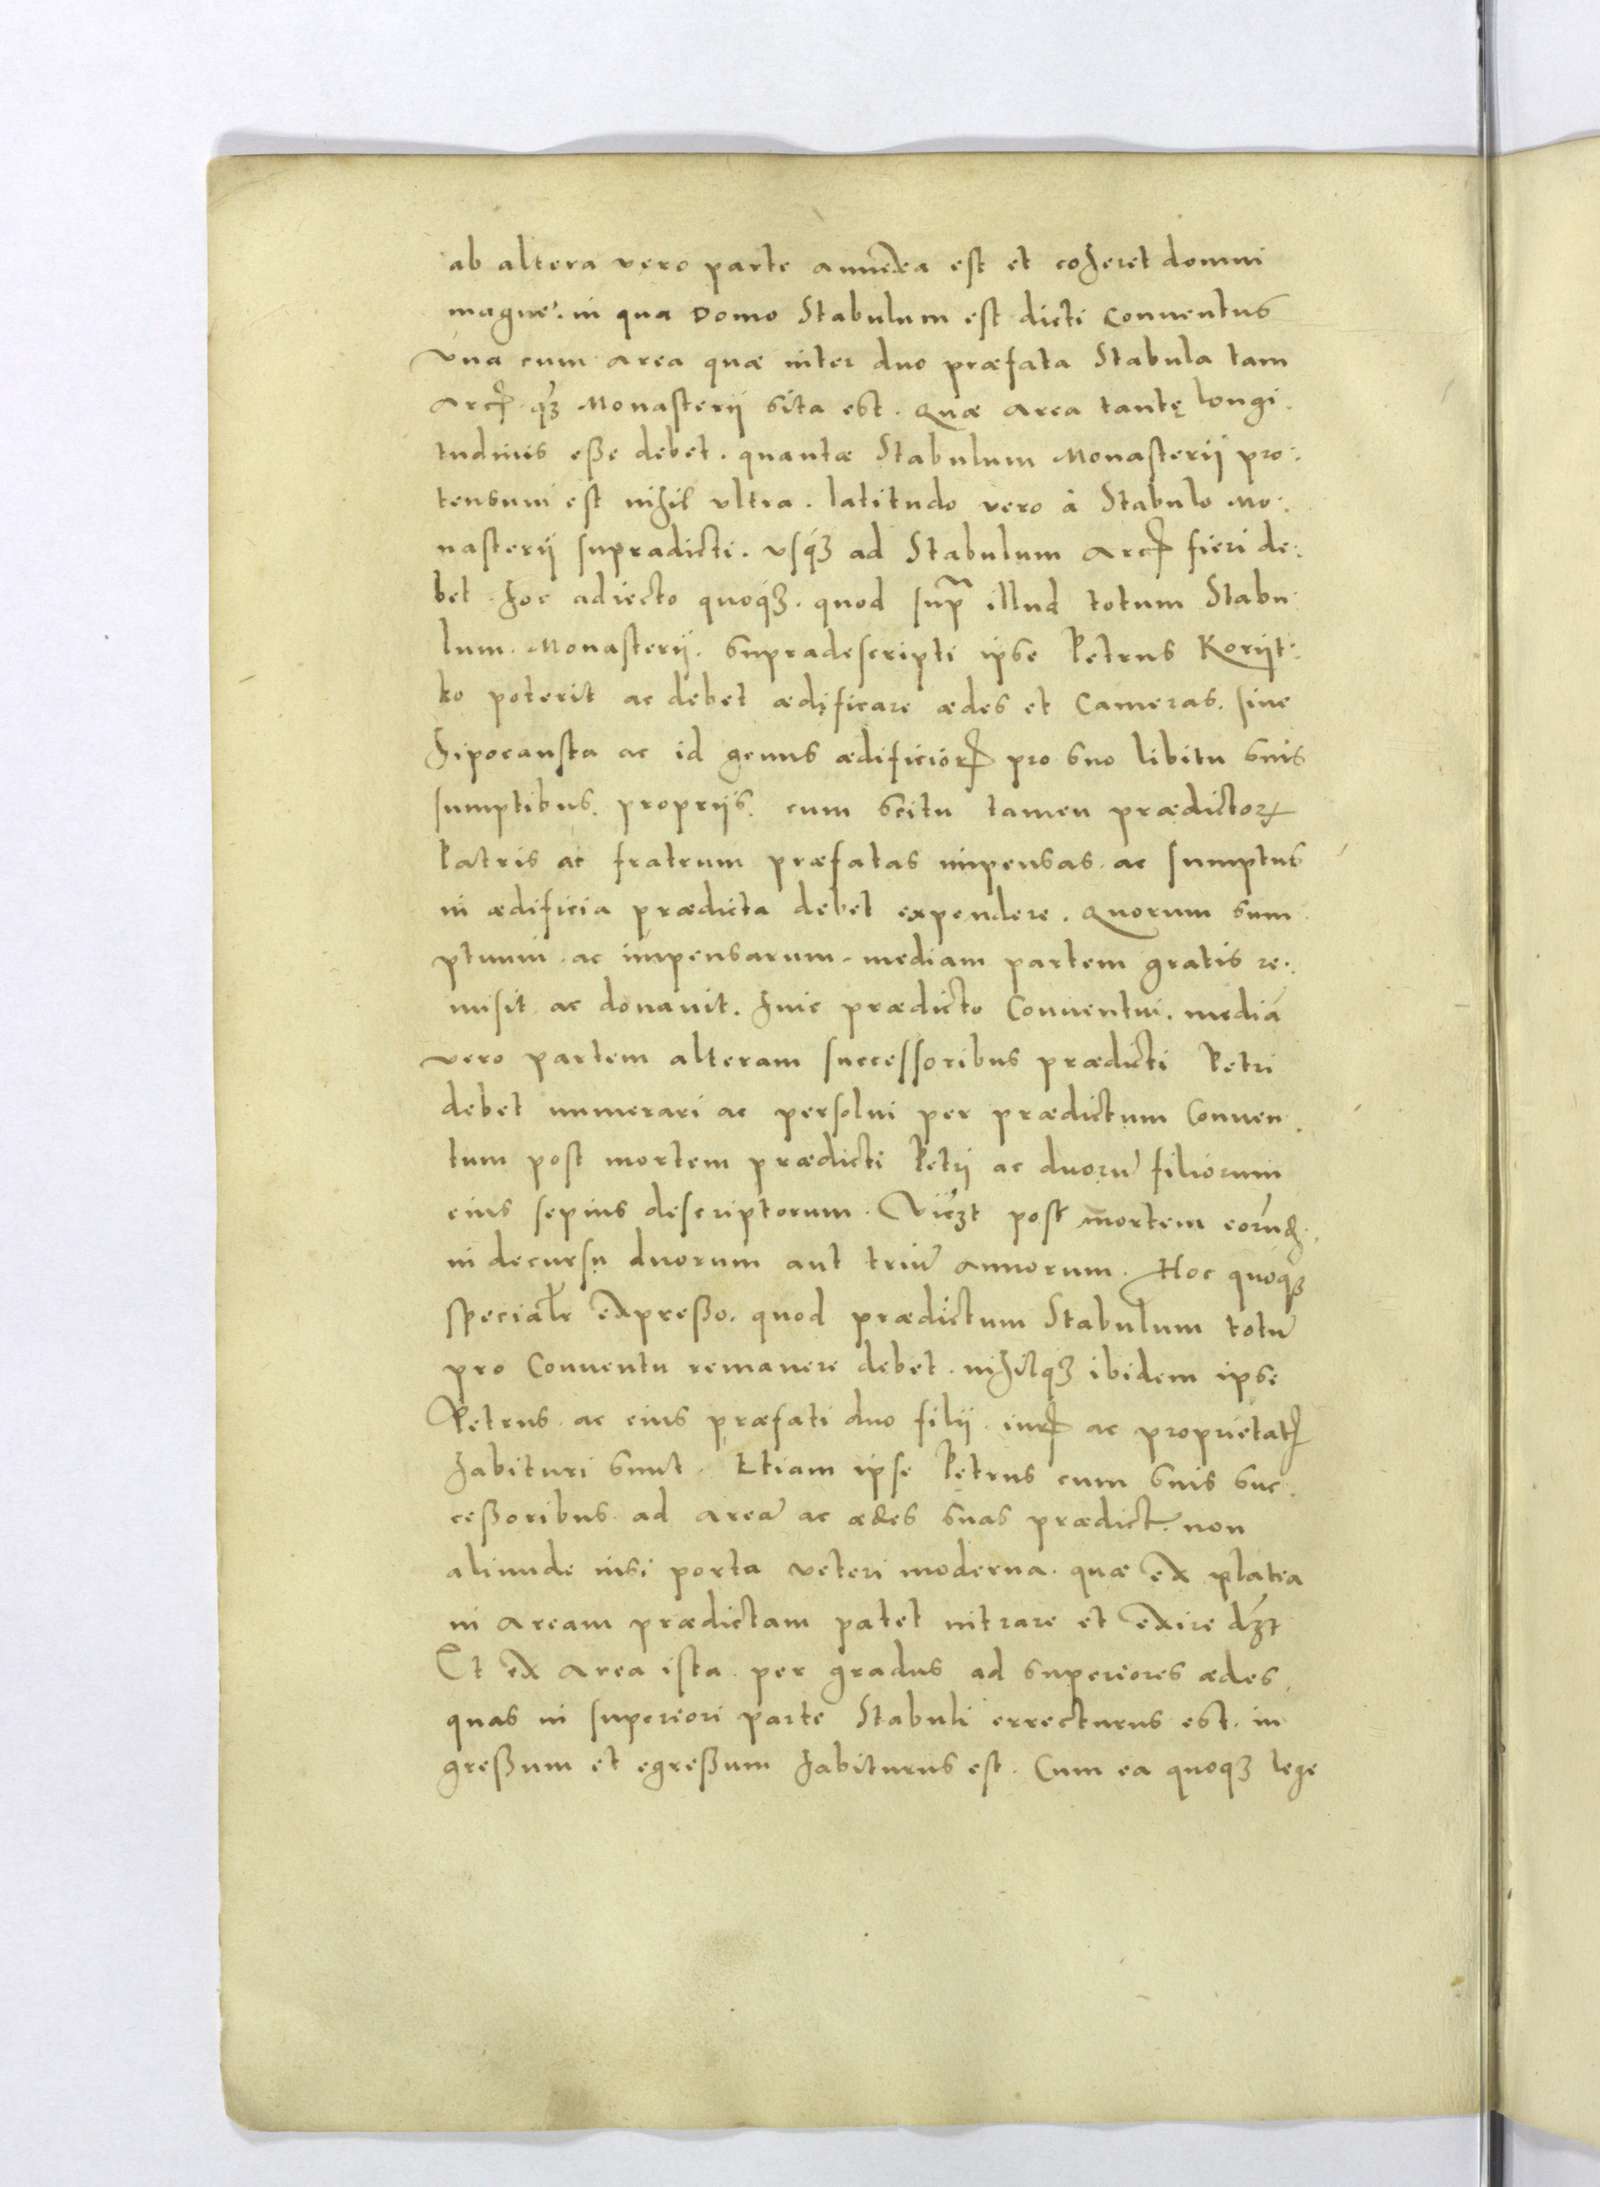 ab altera vero parte annexa est et coheret domui
magnę. in qua Domo Stabulum est dicti Conuentus
Vna cum Area quæ inter duo præfata Stabula tam
Arcꝭ qꝫ Monasterij sita est. Quæ Area tantę longi
tudinis eße debet. quantæ Stabulum Monasterij pro:
tensum est nihil vltra. latitudo vero à Stabulo Mo:
nasterij supradicti. vsqꝫ ad Stabulum Arcꝭ fieri de:
bet. hoc adiecto quoqꝫ. quod supꝛ illud totum Stabu:
lum. Monasterij. supradescripti ipse Petrus Koriit:
ko poterit ac debet ædificare ædes et Cameras. siue
hipocausta ac id genus ædificiorꝭ pro suo libitu suis
sumptibus. proprijs. cum scitu tamen prædictoꝝ
Patris ac fratrum præfatas impensas. ac sumptus
in ædificia prædicta debet expendere. Quorum sum
ptuum. ac impensarum. mediam partem gratis re:
misit ac donauit. huic prædicto Conuentui. mediā
vero partem alteram successoribus prædicti Petri
debet numerari ac persolui per prædictum Conuen
tum post mortem prædicti Petrj ac duorū filiorum
eius sepius descriptorum. Vicꝫt post mortem eorūd.
in decursu duorum aut triū annorum. Hoc quoqꝫ
specialr̄ expreßo. quod prædictum Stabulum totū
pro Conuentu remanere debet. nihilqꝫ ibidem ipse
Petrus. ac eius præfati duo filij. iurꝭ ac proprietatꝭ
habituri sunt. Etiam ipse Petrus cum suis suc
ceßoribus ad areā ac ædes suas prædict. non
aliunde nisi porta veteri moderna. quæ ex platea
in Aream prædictam patet intrare et exire dꝫt
Et ex Area ista. per gradus ad superiores ædes
quas in superiori parte Stabuli errecturus est. in
greßum et egreßum habiturus est. Cum ea quoqꝫ lege